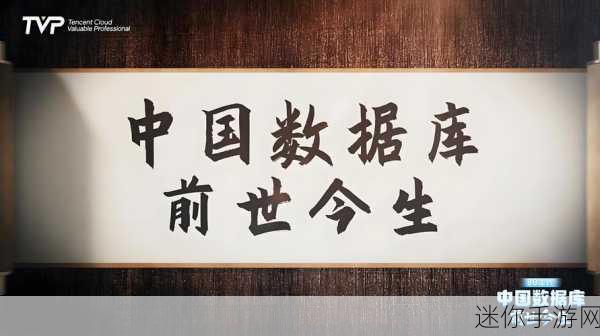 TVP Tencent Cloud
Valuable Professional
中国数据库
前世今生
中国数据库
迷你手游网